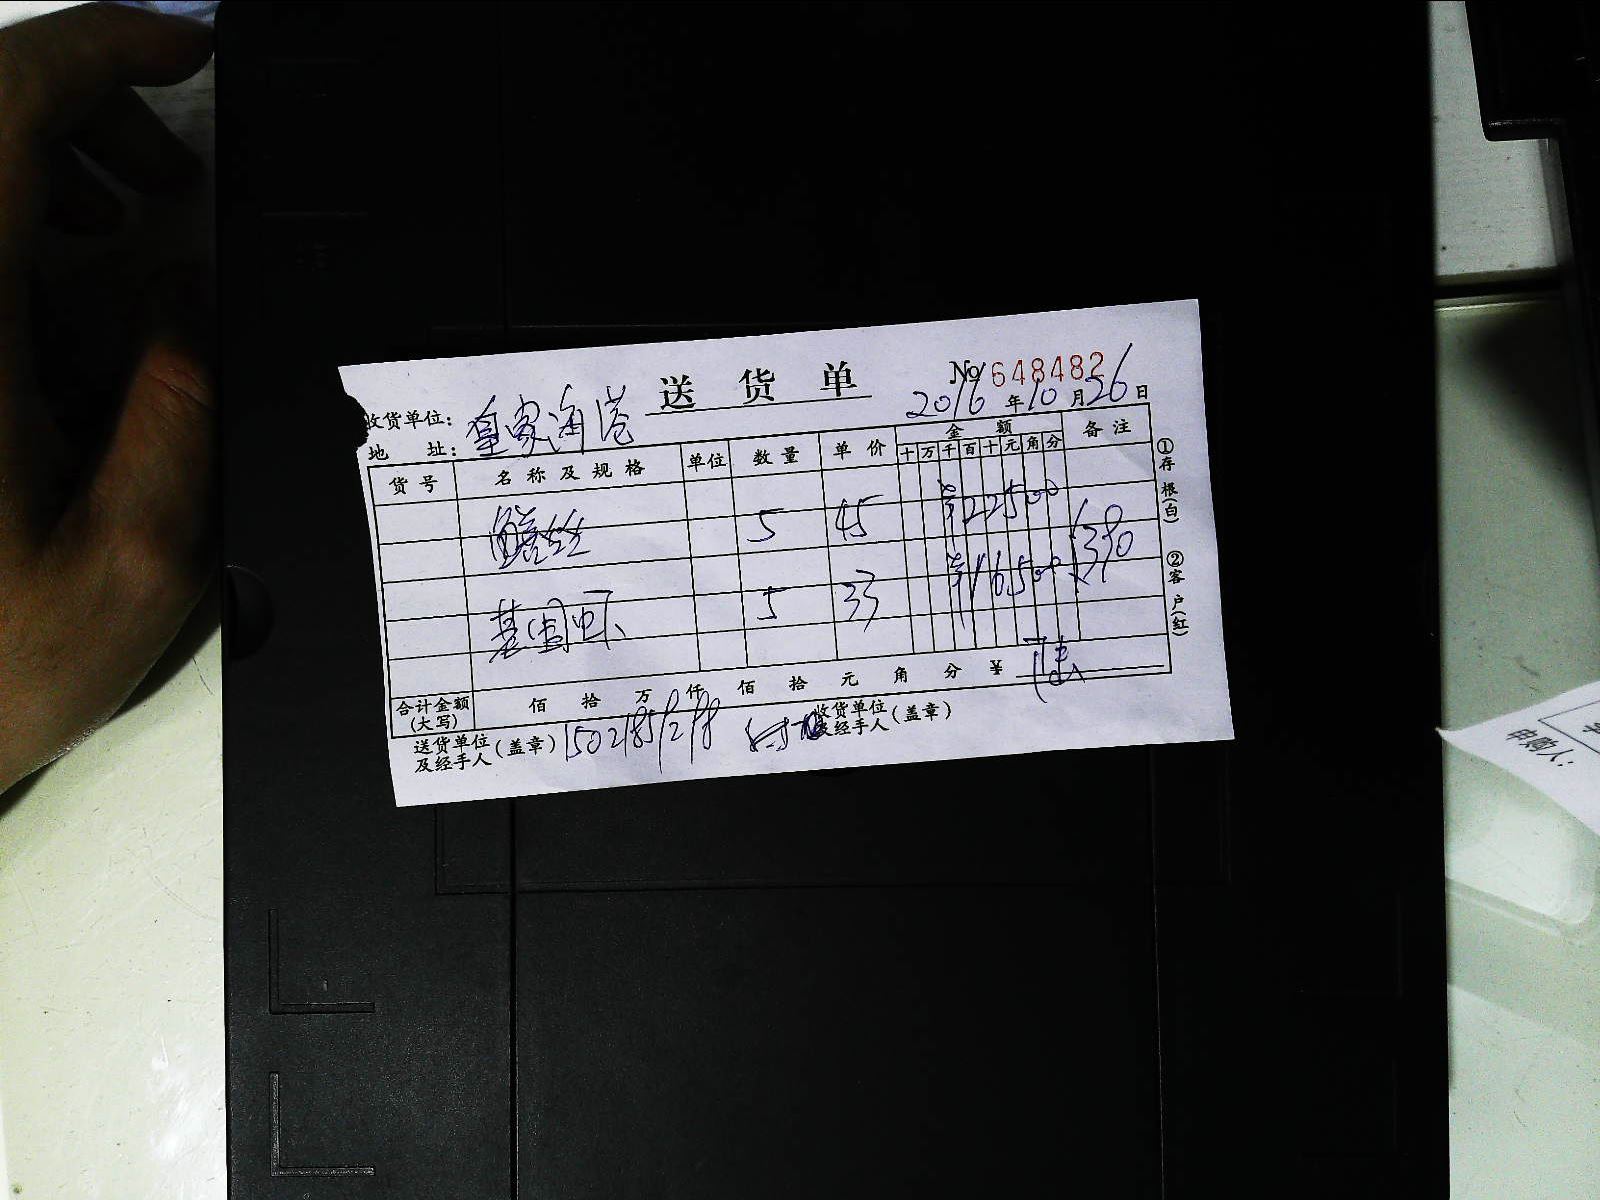 送货单 № 648482
收货单位: 皇家海港 2016年10月26日
地 址:
货号 名称及规格 单位 数量 单价 金额 备注
十 万 千 百 十 元 角 分
鳝丝 5 45 ¥22500
390
基围虾 5 33 ¥16500
合计金额(大写) 佰 拾 万 仟 佰 拾 元 角 分 ¥
送货单位及经手人(盖章) 收货单位及经手人(盖章)
①存根(白) ②客户(红)
申购人: